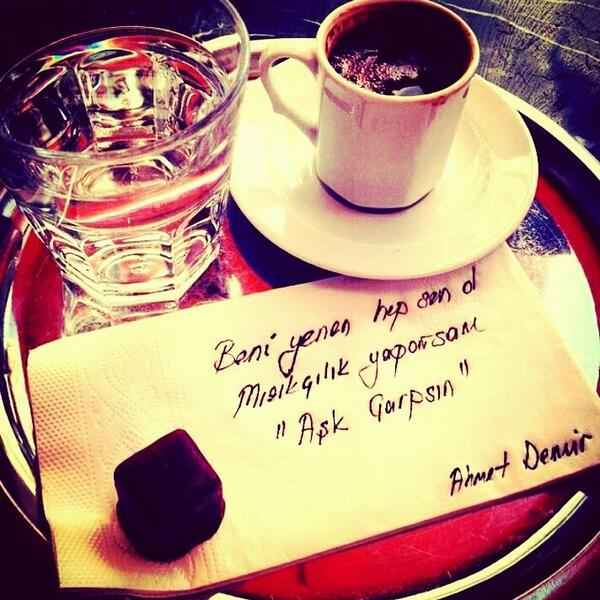 Beni yenen hep sen ol
Mızıkçılık yaparsam
"Aşk Çarpsın"
Ahmet Demir